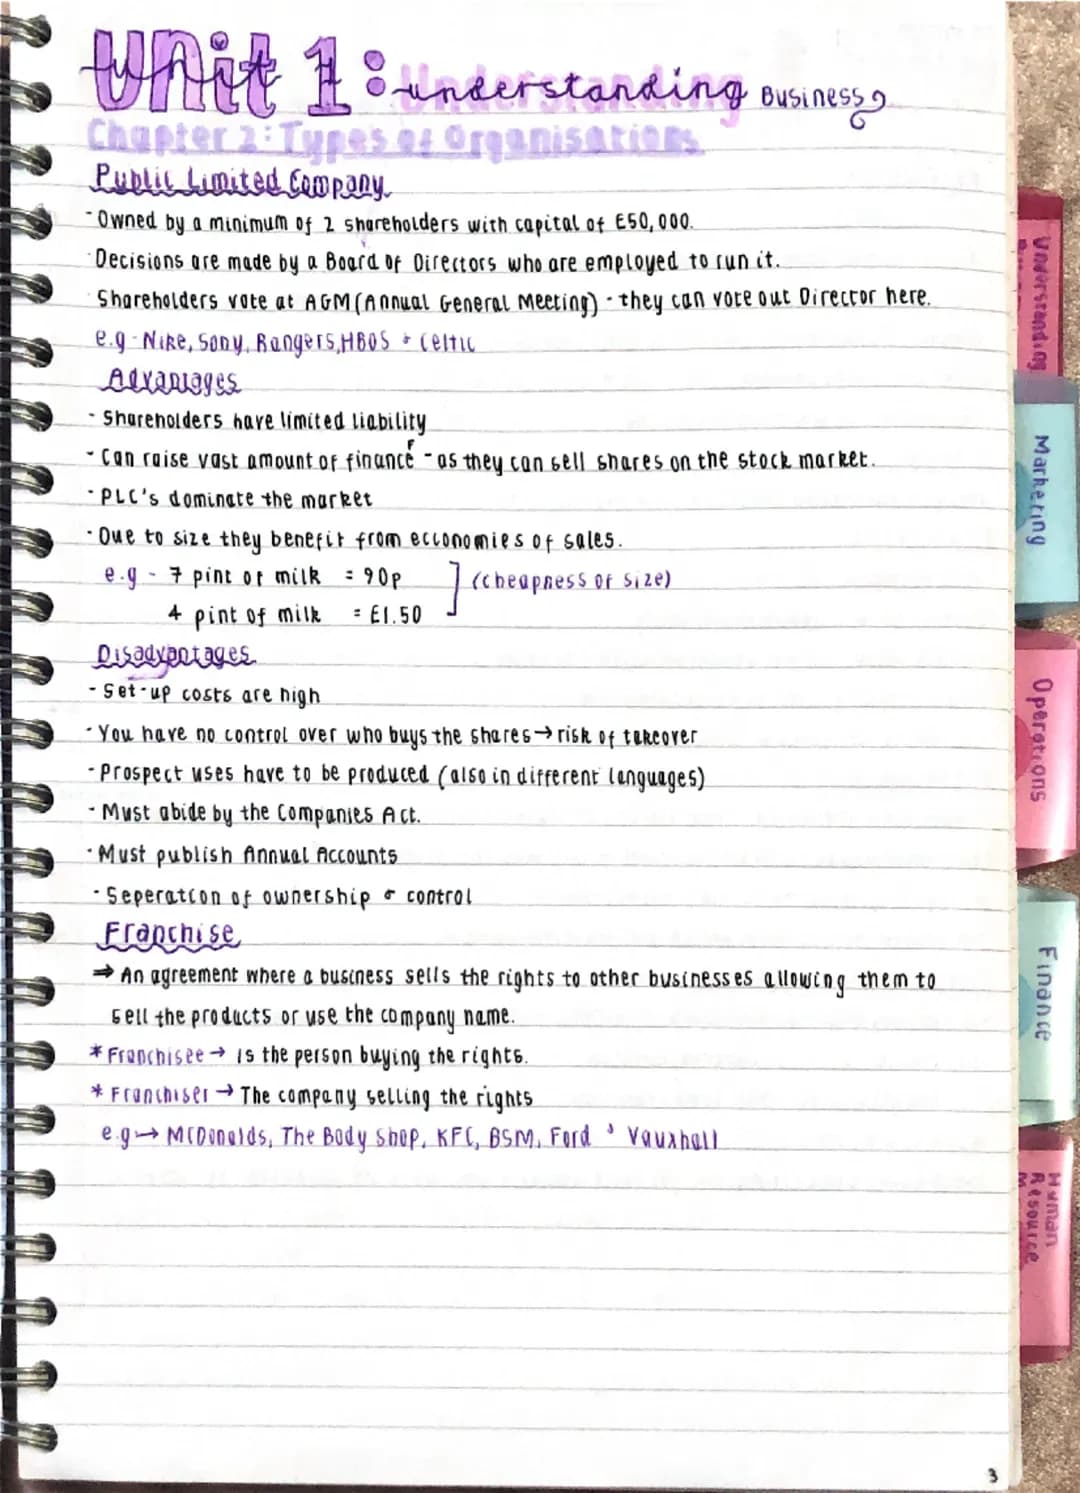 Unit 1: Understanding Business
Chapter 2: Types of Organisations
Public Limited Company
- Owned by a minimum of 2 shareholders with capital of £50,000.
- Decisions are made by a Board of Directors who are employed to run it.
Shareholders vote at AGM (Annual General Meeting) - they can vote out Director here.
e.g - Nike, Sony, Rangers, HBOS & Celtic
Advantages
- Shareholders have limited liability
- Can raise vast amount of finance - as they can sell shares on the stock market.
- PLC's dominate the market
- Due to size they benefit from ecconomies of sales.
e.g - 7 pint of milk = 90p
4 pint of milk = £1.50
(cheapness of size)
Disadvantages
- Set-up costs are high
- You have no control over who buys the shares → risk of takeover
- Prospect uses have to be produced (also in different languages)
- Must abide by the Companies Act.
- Must publish Annual Accounts
- Seperation of ownership & control
Franchise
⇒ An agreement where a business sells the rights to other businesses allowing them to
sell the products or use the company name.
* Franchisee → is the person buying the rights.
* Franchiser → The company selling the rights
e.g → McDonalds, The Body Shop, KFC, BSM, Ford & Vauxhall
3
Understanding
Marketing
Operations
Finance
Human
Resource